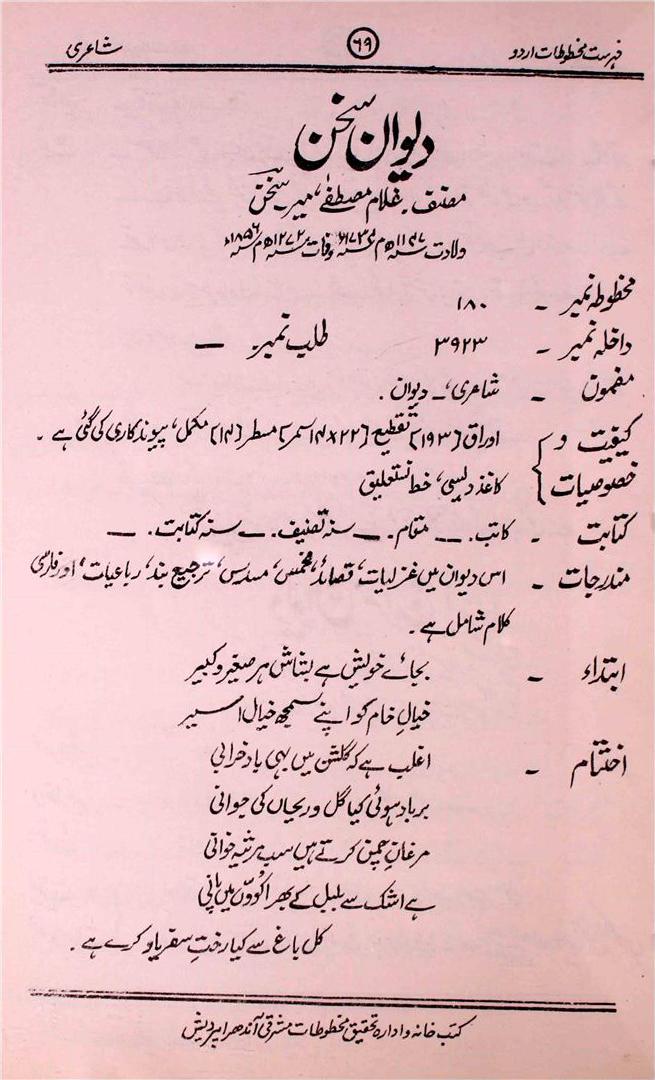 فہرست مخطوطات اردو ۶۹ شاعری
دیوان سخن
مصنف۔ غلام مصطفےٰ، میر۔ سخنؔ
ولادت سنہ ۱۱۴۷ھ م سنہ ۱۷۳۴ء وفات سنہ ۱۲۷۲ھ م سنہ ۱۸۵۶ء
مخطوطہ نمبر ۔ ۱۸۰
داخلہ نمبر ۔ ۳۹۲۳ طلب نمبر۔ —
مضمون ۔ شاعری، ۔ دیوان ۔
کیفیت و اوراق [۱۹۳] تقطیع [۲۲×۱۴سمر] مسطر [۱۴] مکمل، پیوندکاری کی گئی ہے ۔
خصوصیات کاغذ دیسی، خط نستعلیق
کتابت ۔ کاتب۔ — مقام۔ — سنہ تصنیف۔ — سنہ کتابت۔ —
مندرجات ۔ اس دیوان میں غزلیات، قصائد، مخمس، مسدس، ترجیع بند، رباعیات، اور فارسی
کلام شامل ہے ۔
ابتداء ۔ بجائے خویش ہے بشاش ہر صغیر و کبیر
خیالِ خام کو اپنے سمجھ خیال اسیر
اختتام ۔ اغلب ہے کہ گلشن میں بہی باد خرابی
برباد ہوئی کیا گل و ریحاں کی جوانی
مرغانِ چمن کرتے ہیں سب مرثیہ خوانی
ہے اشک سے بلبل کے بھرا کووں میں پانی
کل باغ سے کیا رختِ سفر باد کرے ہے ۔
کتب خانہ و ادارہ تحقیق مخطوطات مشرقی آندھراپردیش